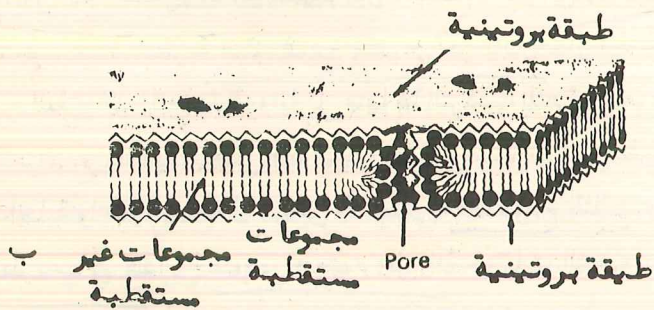 طبقة بروتينية
ب
مجموعات غير
مستقطبة
مجموعات
مستقطبة
Pore
طبقة بروتينية